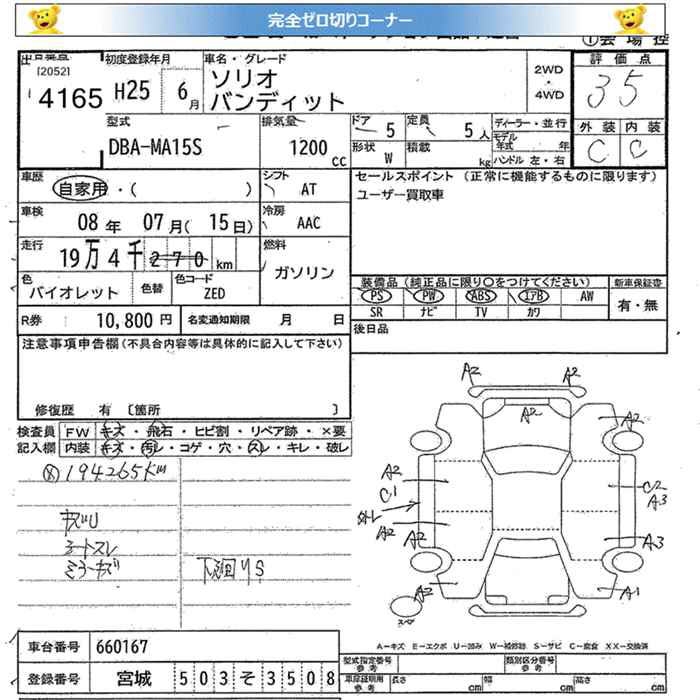 完全ゼロ切りコーナー
①会場控
出品番号 初度登録年月 車名・グレード 評価点
[2052]
4165 H25 6月 ソリオ
バンディット
2WD
・
4WD
3.5
型式 排気量 ドア 5 定員 5人 ディーラー・並行 外装 内装
DBA-MA15S 1200cc 形状 W 積載 kg モデル年式 年
ハンドル 左・右 C C
車歴 自家用・( ) シフト AT セールスポイント (正常に機能するものに限ります)
ユーザー買取車
車検 08年 07月( 15日) 冷房 AAC
走行 19万4千270km 燃料 ガソリン
色 バイオレット 色替 色コード ZED
装備品 (純正品に限り○をつけてください) 新車保証書
PS PW ABS エアB AW 有・無
SR ナビ TV カワ
R券 10,800円 名変通知期限 月 日 後日品
注意事項申告欄(不具合内容等は具体的に記入して下さい)
修復歴 有 〔箇所 〕
検査員 FW キズ・飛石・ヒビ割・リペア跡・×要
記入欄 内装 キズ・汚レ・コゲ・穴・スレ・キレ・破レ
Ⓧ194265Km
キズU
シートスレ
ミラーキズ 下廻りS
A2 A2
A2
A2 A2
C1 C2
A3
外レ
A2 A2 A3
A2 A1
スペア
A-キズ E-エクボ U-凹み W-補修跡 S-サビ C-腐食 XX-交換済
車台番号 660167
登録番号 宮城 503そ3508
型式指定番号 参考 類別区分番号 参考
車庫証明用 参考 長さ cm 幅 cm 高さ cm